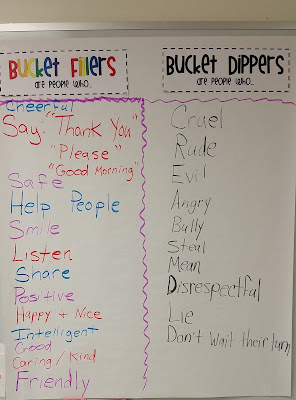 Bucket Fillers
are people who...
Cheerful
Say: "Thank You"
"Please"
"Good Morning"
Safe
Help People
Smile
Listen
Share
Positive
Happy + Nice
Intelligent
Good
Caring / Kind
Friendly
Bucket Dippers
are people who...
Cruel
Rude
Evil
Angry
Bully
Steal
Mean
Disrespectful
Lie
Don't wait their turn